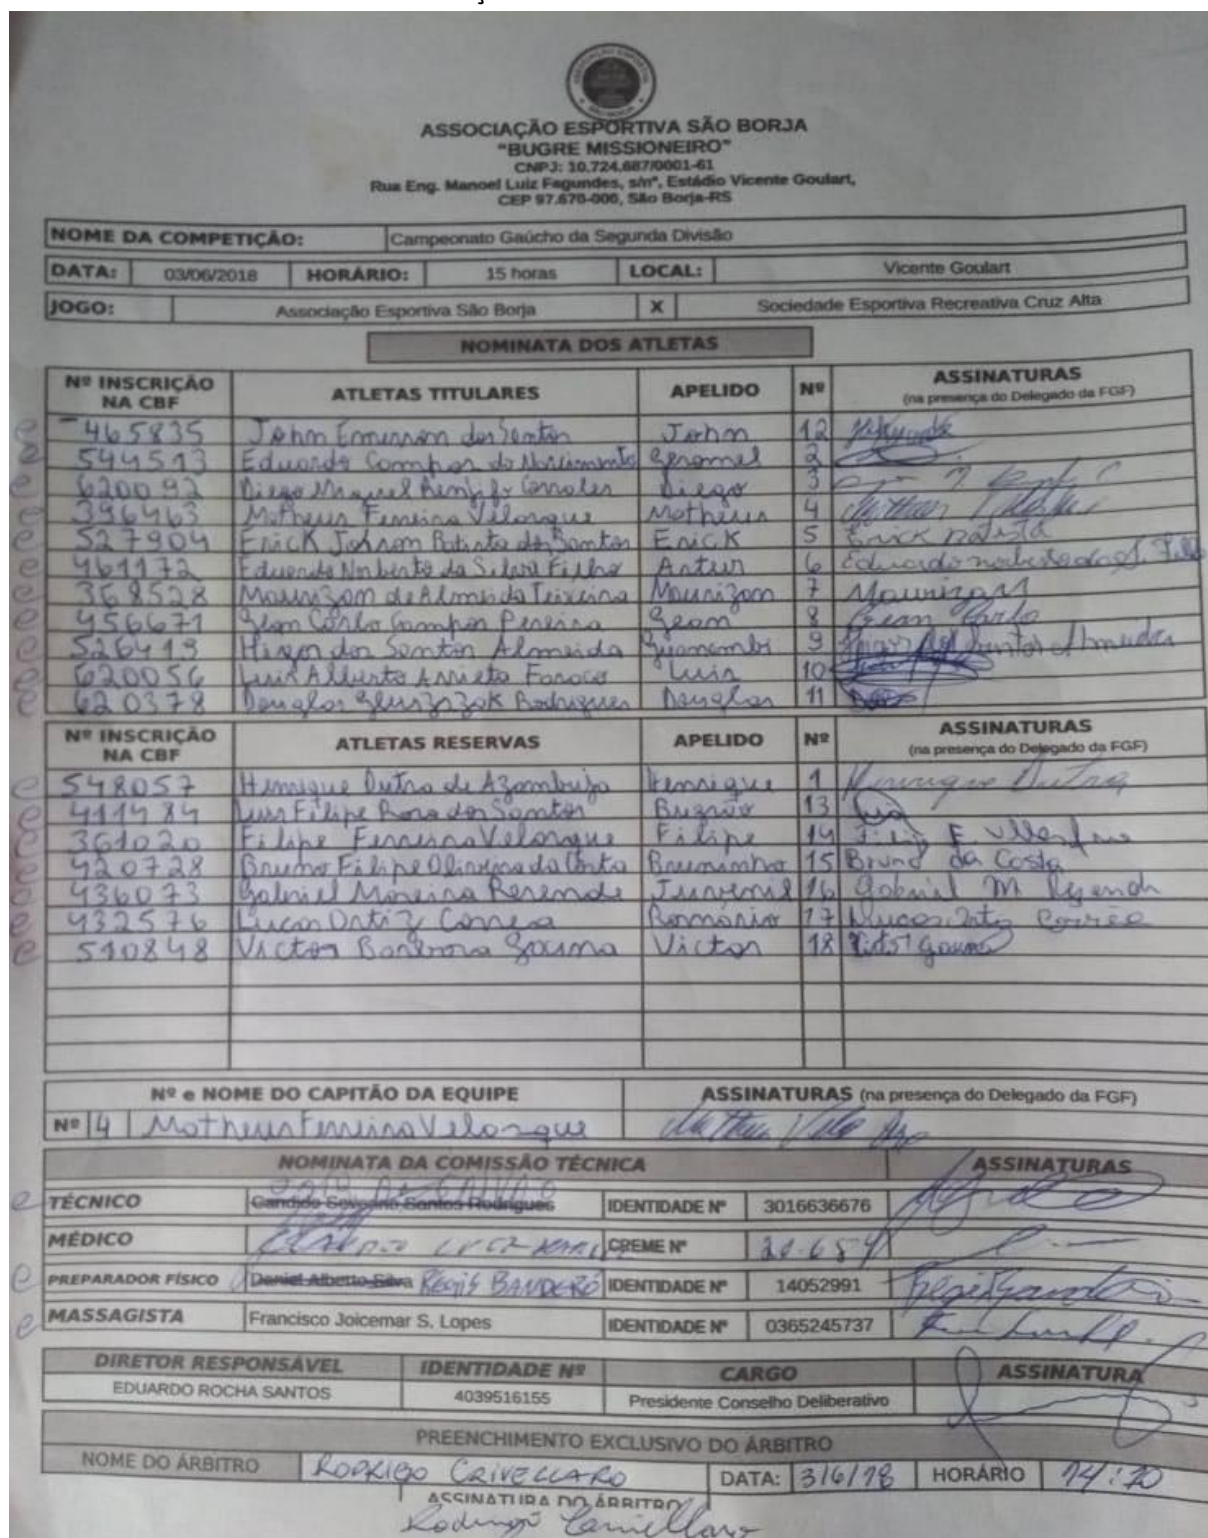 ASSOCIAÇÃO ESPORTIVA SÃO BORJA
"BUGRE MISSIONEIRO"
CNPJ: 10.724.687/0001-61
Rua Eng. Manoel Luiz Fagundes, s/nº, Estádio Vicente Goulart,
CEP 97.670-000, São Borja-RS
NOME DA COMPETIÇÃO: Campeonato Gaúcho da Segunda Divisão
DATA: 03/06/2018 HORÁRIO: 15 horas LOCAL: Vicente Goulart
JOGO: Associação Esportiva São Borja X Sociedade Esportiva Recreativa Cruz Alta
NOMINATA DOS ATLETAS
Nº INSCRIÇÃO NA CBF ATLETAS TITULARES APELIDO Nº ASSINATURAS (na presença do Delegado da FGF)
465835 John Emerson dos Santos John 12
544513 Eduardo Campos do Nascimento Geromel 2
620092 Diego Miguel Diego 3
396463 Matheus Ferreira Velasque Matheus 4
527904 Erick Batista dos Santos Erick 5 Erick batista
461172 Eduardo Norberto da Silva Filho Artur 6 Eduardo norberto da S. Filho
368528 Maurizan de Almeida Teixeira Maurizan 7 Maurizan
456671 Gean Carlo Campos Pereira Gean 8 Gean Carlo
526419 Higor dos Santos Almeida 9 Higor dos Santos Almeida
620056 Luis Alberto Arrieta Luis 10
620378 Douglas Rodrigues Douglas 11
Nº INSCRIÇÃO NA CBF ATLETAS RESERVAS APELIDO Nº ASSINATURAS (na presença do Delegado da FGF)
548057 Henrique Dutra de Azambuja Henrique 1 Henrique Dutra
411484 Luis Filipe Rosa dos Santos 13
361020 Filipe Ferreira Velasque Filipe 14
420728 Bruno Filipe Oliveira da Costa Bruninho 15 Bruno da Costa
436073 Gabriel Moreira Resende Juvenil 16 Gabriel M Resende
432576 Lucas Ortiz Correa Romário 17 Lucas Ortiz Corrêa
510848 Victor Barbosa Gouma Victor 18
Nº e NOME DO CAPITÃO DA EQUIPE ASSINATURAS (na presença do Delegado da FGF)
Nº 4 Matheus Ferreira Velasque
NOMINATA DA COMISSÃO TÉCNICA ASSINATURAS
TÉCNICO IDENTIDADE Nº 3016636676
MÉDICO CREME Nº 20.654
PREPARADOR FÍSICO Daniel Alberto Silva Regis Banderó IDENTIDADE Nº 14052991
MASSAGISTA Francisco Joicemar S. Lopes IDENTIDADE Nº 0365245737
DIRETOR RESPONSÁVEL IDENTIDADE Nº CARGO ASSINATURA
EDUARDO ROCHA SANTOS 4039516155 Presidente Conselho Deliberativo
PREENCHIMENTO EXCLUSIVO DO ÁRBITRO
NOME DO ÁRBITRO RODRIGO CRIVELLARO DATA: 3/6/18 HORÁRIO 14:20
ASSINATURA DO ÁRBITRO
Rodrigo Crivellaro